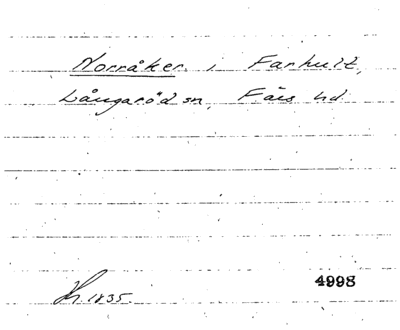 Norråker i Farhult,
Långaröd sn, Färs hd
H 1835.
4998